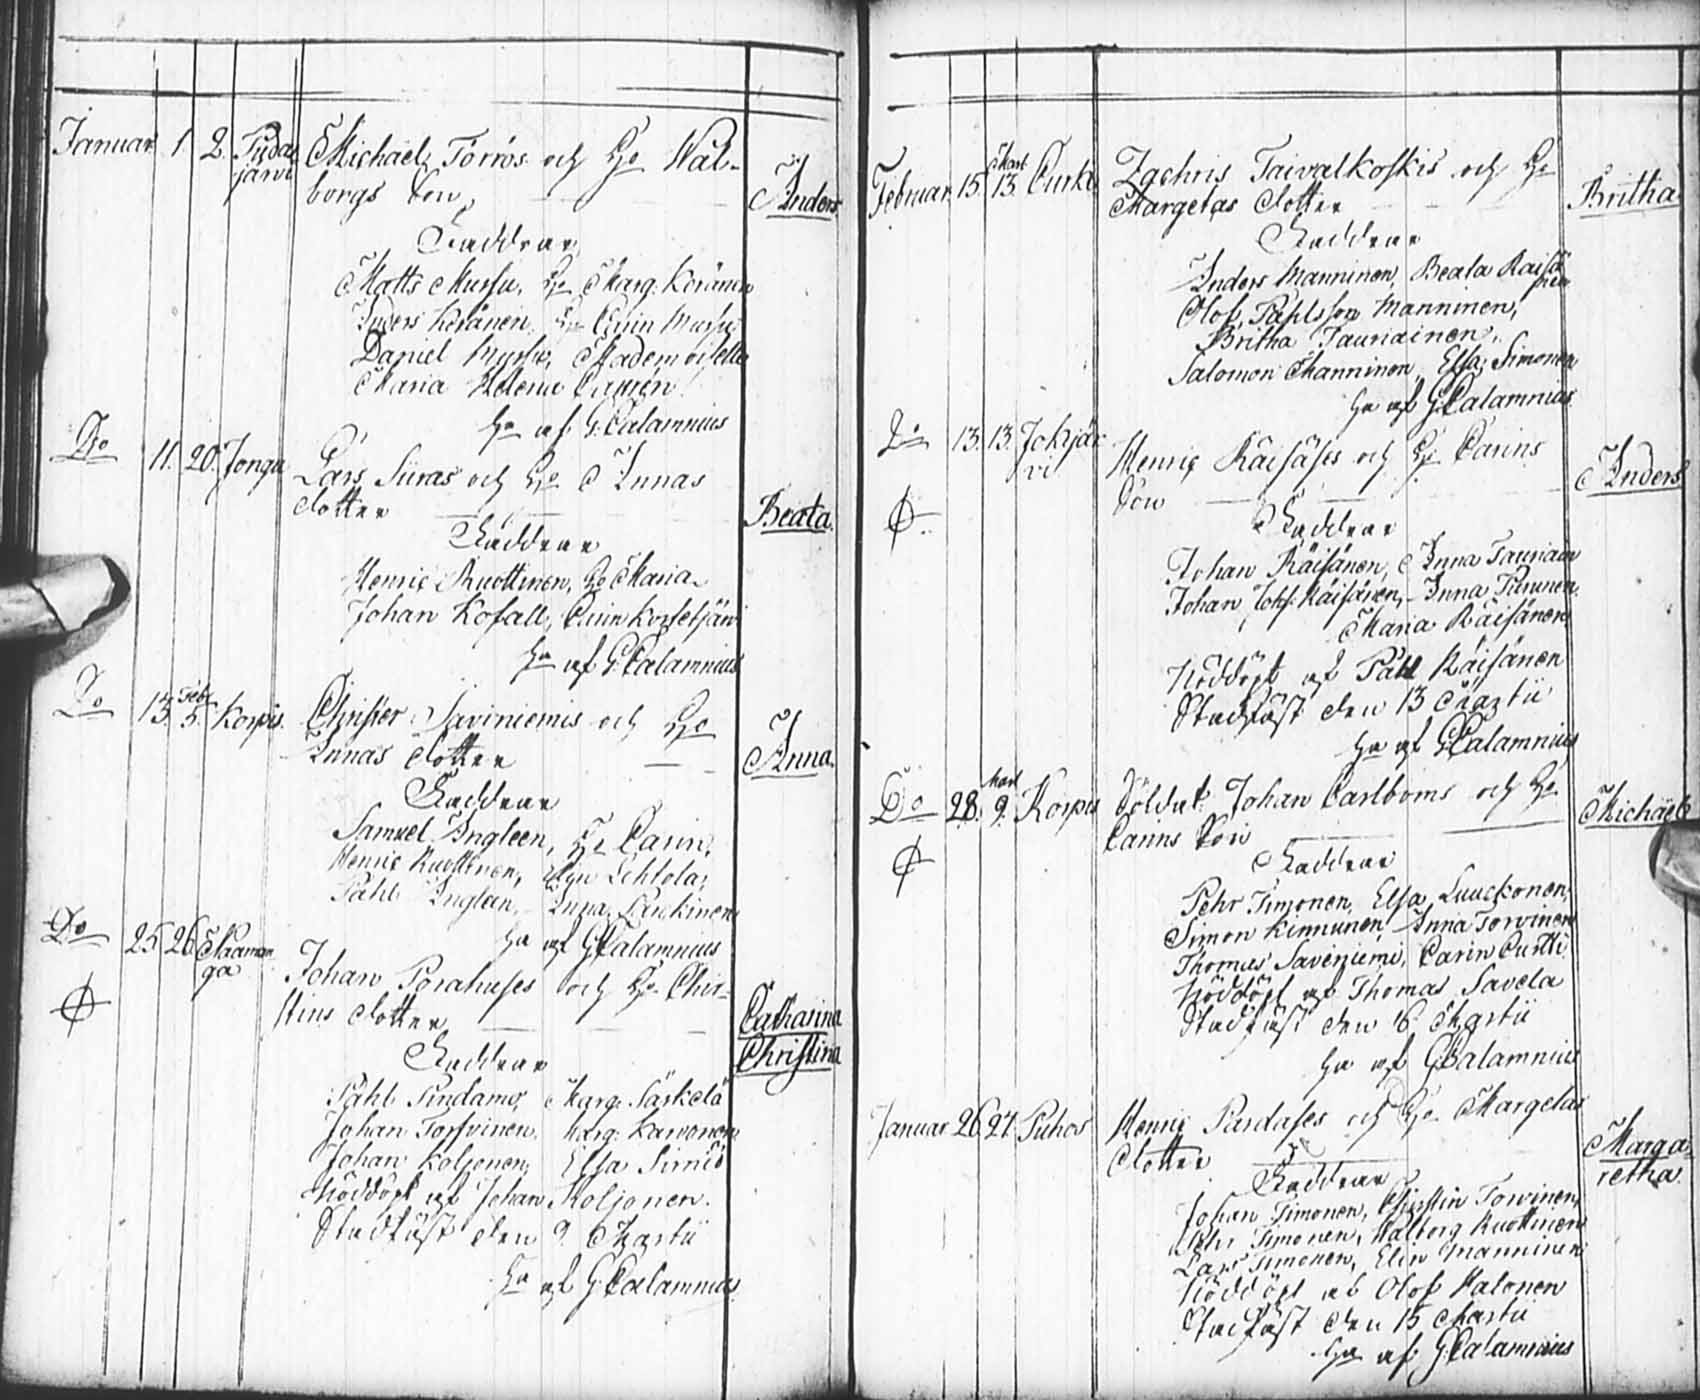 Januar. 1. 2. Pudas
järvi
Michael Törrös och Ho Wal-
borgs Son
Anders
Faddrar
Matts Mursu, Ho Marg: Keränen
Anders Keränen, Ho Carin Mursu
Daniel Mursu, Mademoiselle
Maria Helena Cajan
Ha af G. Calamnius
Do 11. 20. Jongu
Lars Siiras och Ho Annas
dotter
Beata
Faddrar
Henric Ruottinen, Ho Maria
Johan Kosall, Carin
Ha af G. Calamnius
Do 13. Feb. 5. Korpis.
Christer Saviniemis och Ho
Annas dotter
Anna
Faddrar
Samuel Ingleen, Ho Carin,
Henric Ruottinen, Lehtola,
Pahl Ingleen, Anna Laukinen
Ha af G Calamnius
Do 25. 26. Naaman
ga
Johan Porahuses och Ho Chir-
stins dotter
Catharina
Christina
Faddrar
Påhl Pindamo, Marg: Särkelä
Johan Torfvinen. Marg: Karvonen
Johan Koljonen, Elsa Simoi
Nöddöpt af Johan Koljonen.
Stadfäst den 9. Martii
Ha af G. Calamnius
Februar. 15. Mart 13. Curki
Zachris Taivalkoskis och Ho
Margetas dotter
Britha
Faddrar
Anders Manninen, Beata Raisä
nen
Olof Påhlsson Manninen,
Britha Tauriainen,
Salomon Manninen, Elsa Simonen
Ha af G. Calamnius
Do 13. 13. Jokijär
vi
Henric Räisäses och Ho Carins
Son
Anders
Faddrar
Johan Räisänen, Anna Taurian
Johan Johs: Räisänen, Anna Turunen
Maria Räisänen
Nöddöpt af Påhl Räisänen
Stadfäst den 13 Martii
Ha af G Calamnius
Do 28. Mart 9. Korpis
Soldat Johan Carlboms och Ho
Carins Son
Michaël
Faddrar
Pehr Timonen, Elsa Luuckonen,
Simon Kinnunen Anna Torvinen
Thomas Saveniemi, Carin Curtti
Nöddöpt af Thomas Savela
Stadfäst den 16. Martii
Ha af G Calamnius
Januar. 26. 27. Puhos
Henric Pardases och Ho Margetas
dotter
Marga-
retha.
Faddrar
Johan Timonen, Chirstin Torvinen,
Pehr Timonen, Walborg Ruottinen
Lars Timonen, Elin Manninen
Nöddöpt af Olof Halonen
Stadfäst den 15 Martii
Ha af G. Calamnius